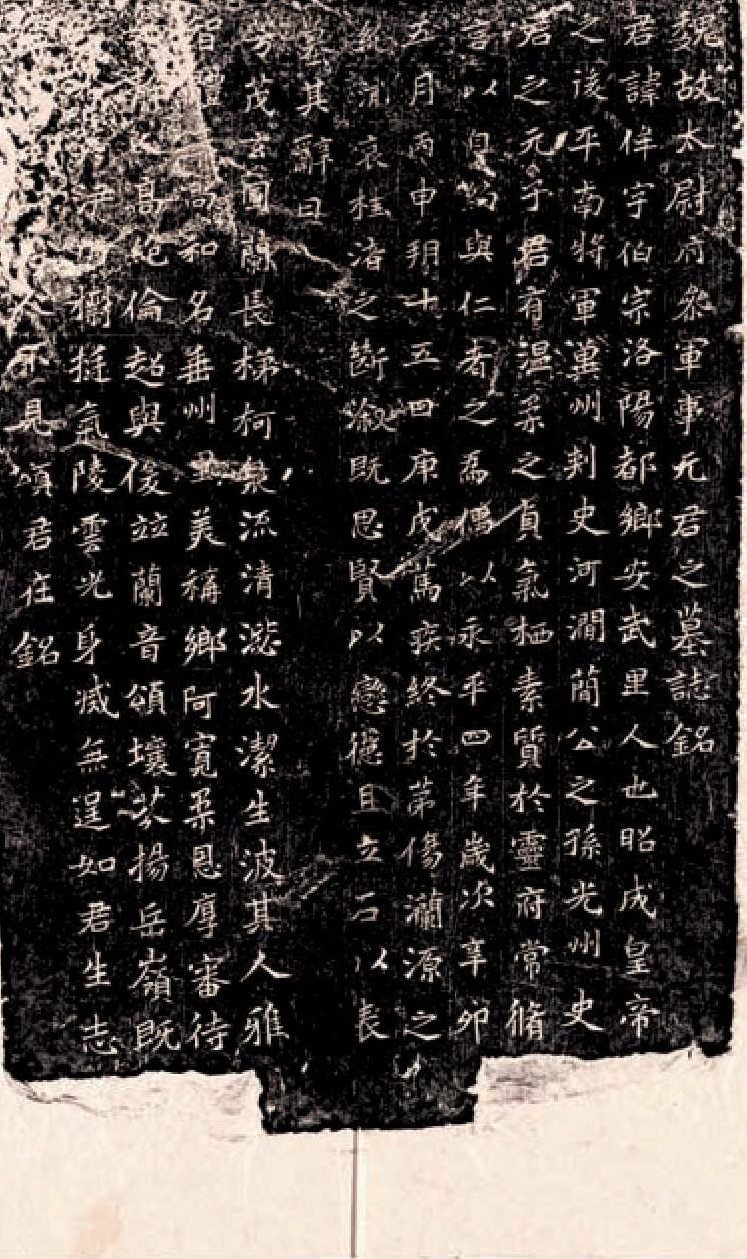 魏故太尉府參軍事元君之墓誌銘
君諱侔字伯宗洛陽都鄉安武里人也昭成皇帝
之後平南將軍冀州刺史河澗簡公之孫光州史
君之元子君有温柔之貞氣栖素質於靈府常脩
言以自約與仁者之爲儔以永平四年歲次辛卯
五月丙申朔十五日庚戌篤疾終於苐傷瀾源之
絶消哀桂渚之斷溆既思賢以戀德且立石以表
其辭曰
茂玄圃蘭長梯柯泉流清澁水潔生波其人雅
和名垂州里美稱鄉阿寬柔恩厚審待
昌絶倫超與俊竝蘭音頌壤芬揚岳嶺既
獨挺氣陵雲光身滅無逞如君生志
不見頌君在銘